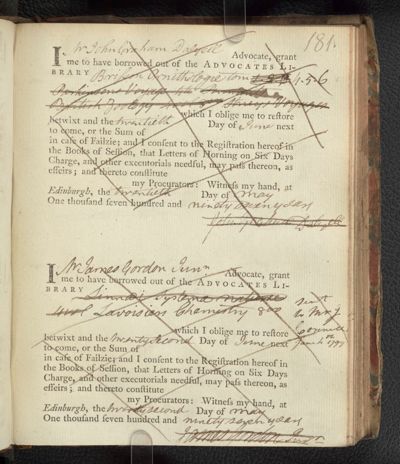 181.
I Mr John Graham Dalyell Advocate, grant
me to have borrowed out of the ADVOCATES LI-
BRARY Brisson Ornithologie tom 4. 5. 6
Voyage 4to
British Zoology Voyages
which I oblige me to restore
betwixt and the twentieth Day of June next
to come, or the Sum of
in case of Failzie; and I consent to the Registration hereof in
the Books of Session, that Letters of Horning on Six Days
Charge, and other executorials needful, may pass thereon, as
effeirs; and thereto constitute
my Procurators: Witness my hand, at
Edinburgh, the twentieth Day of May
One thousand seven hundred and ninety seven years
John Graham Dalyell
I Mr James Gordon Junr Advocate, grant
me to have borrowed out of the ADVOCATES LI-
BRARY Linnaei Systema Naturae
Lavoisiers Chemistry 8vo
sent
to Mr J.
which I oblige me to restore
betwixt and the twenty second Day of June next
to come, or the Sum of
in case of Failzie; and I consent to the Registration hereof in
the Books of Session, that Letters of Horning on Six Days
Charge, and other executorials needful, may pass thereon, as
effeirs; and thereto constitute
my Procurators: Witness my hand, at
Edinburgh, the twenty second Day of May
One thousand seven hundred and ninety seven years
James Gordon Junr